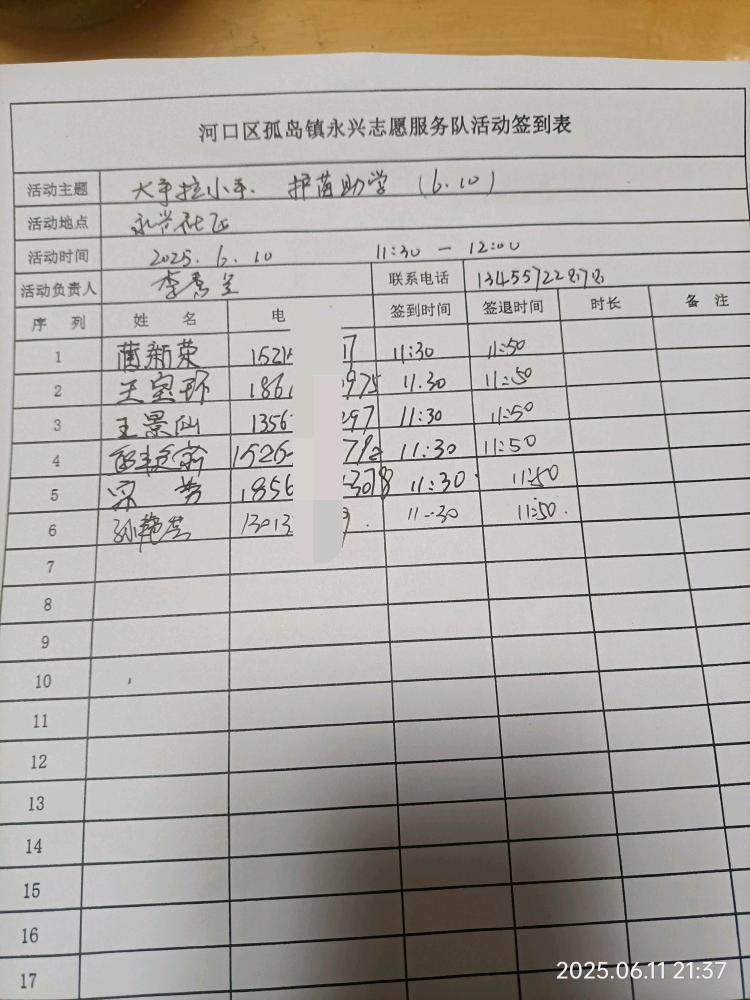 河口区孤岛镇永兴志愿服务队活动签到表
活动主题 大手拉小手. 护苗助学 (6.10)
活动地点 永兴社区
活动时间 2025.6.10 11:30 — 12:00
活动负责人 李 联系电话 13455722878
序 列 姓 名 电 签到时间 签退时间 时长 备 注
1 蔺新荣 1521 17 11:30 11:50
2 王宝环 186 975 11.30 11:50
3 王景仙 1356 297 11:30 11:50
4 1526 79 11:30 11:50
5 宋 1856 378 11:30 11:50
6 孙艳 1301 11:30 11:50.
7
8
9
10
11
12
13
14
15
16
17
2025.06.11 21:37